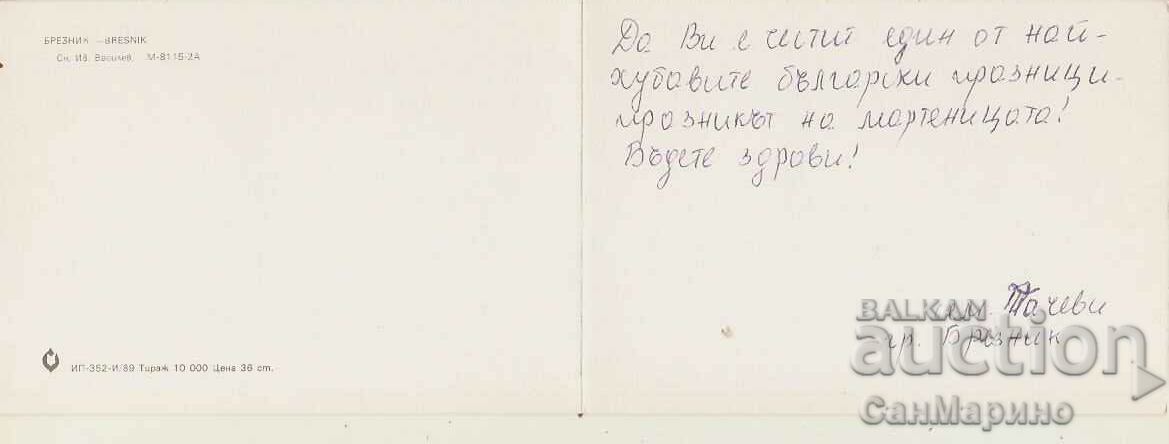 БРЕЗНИК —BRESNIK
Сн. Ив. Василев, М-8115-2А
ИП-352-И/89 Тираж 10 000 Цена 36 ст.
Да Ви е честит един от най-
хубавите български празници-
празникът на мартеницата!
Бъдете здрави!
Тачеви
гр. Брезник
BALKAN
auction
СанМарино